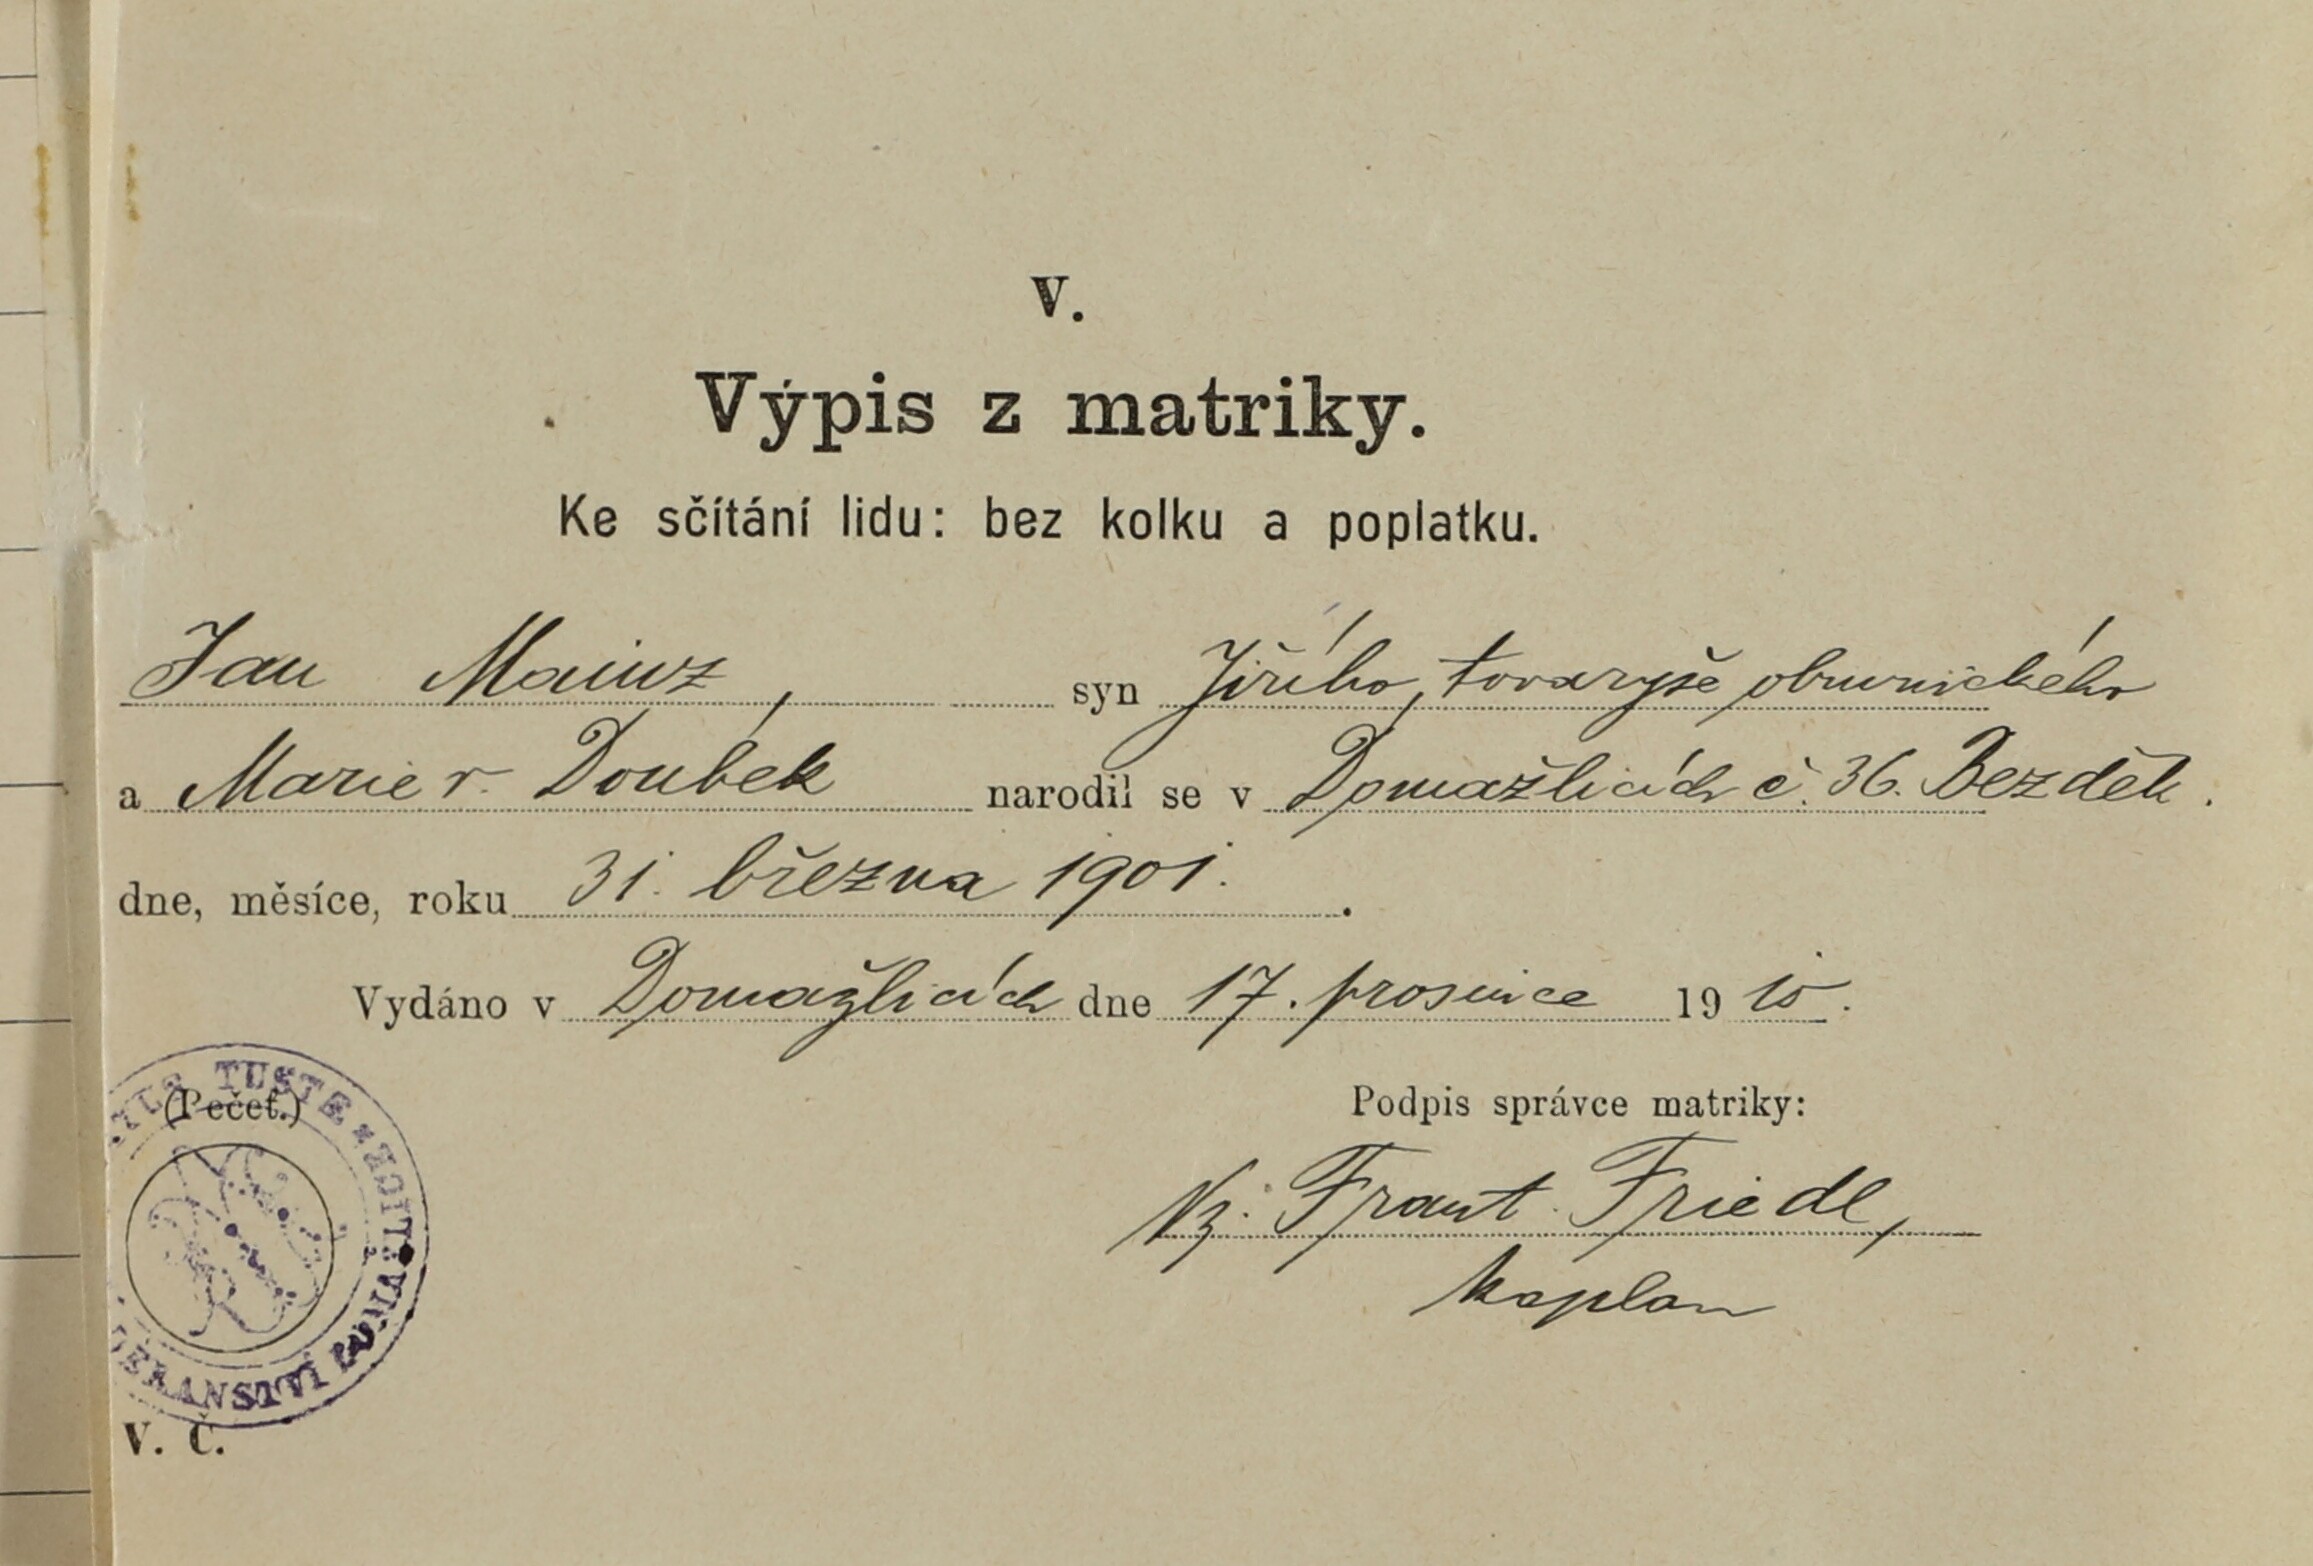 V.
Výpis z matriky.
Ke sčítání lidu: bez kolku a poplatku.
Jan Mainz, syn Jiřího, tovaryše obuvnického
a Marie r. Doubek narodil se v Domažlicích č. 36. Bezděk.
dne, měsíce, roku 31. března 1901.
Vydáno v Domažlicích dne 17. prosince 1910.
(Pečeť.)
Podpis správce matriky:
Vz. Frant. Friedl,
kaplan
V. Č.